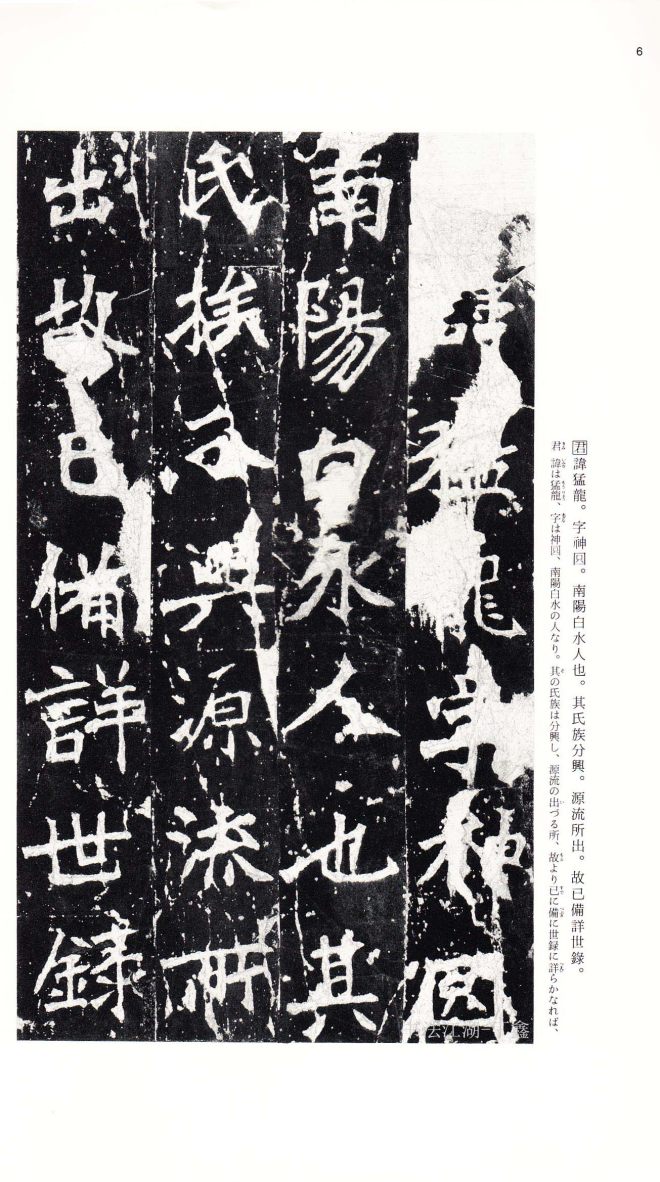 6
君諱猛龍。字神囧。南陽白水人也。其氏族分興。源流所出。故已備詳世錄。
君諱は猛龍、字は神囧、南陽白水の人なり。其の氏族は分興し、源流の出づる所、故より已に備に世録に詳らかなれば、
諱猛龍字神囧
南陽白水人也其
氏族分興源流所
出故已備詳世錄
去江湖